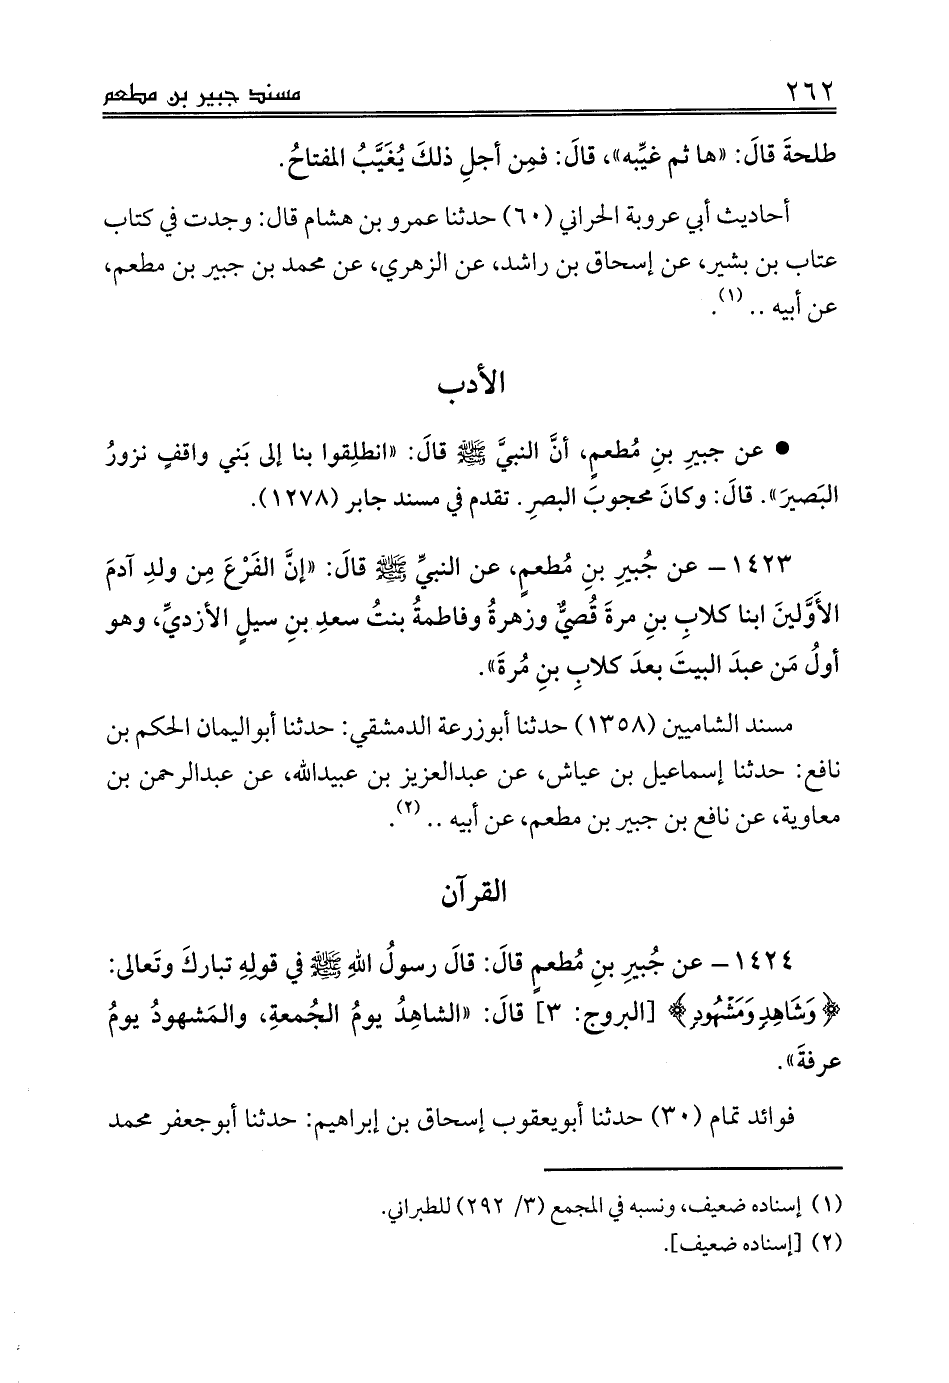 ٢٦٢
مسند جبير بن مطعم
طلحةَ قالَ: «ها ثم غيِّبه»، قالَ: فمِن أجلِ ذلكَ يُغَيَّبُ المفتاحُ.
أحاديث أبي عروبة الحراني (٦٠) حدثنا عمرو بن هشام قال: وجدت في كتاب
عتاب بن بشير، عن إسحاق بن راشد، عن الزهري، عن محمد بن جبير بن مطعم،
عن أبيه .. (١).
الأدب
● عن جبيرِ بنِ مُطعمٍ، أنَّ النبيَّ ﷺ قالَ: «انطلِقوا بنا إلى بَني واقفٍ نزورُ
البَصيرَ». قالَ: وكانَ محجوبَ البصرِ. تقدم في مسند جابر (١٢٧٨).
١٤٢٣ – عن جُبيرِ بنِ مُطعمٍ، عن النبيِّ ﷺ قالَ: «إنَّ الفَرْعَ مِن ولدِ آدمَ
الأَوَّلينَ ابنا كلابِ بنِ مرةَ قُصيٌّ وزهرةُ وفاطمةُ بنتُ سعدِ بنِ سيلٍ الأزديِّ، وهو
أولُ مَن عبدَ البيتَ بعدَ كلابِ بنِ مُرةَ».
مسند الشاميين (١٣٥٨) حدثنا أبوزرعة الدمشقي: حدثنا أبواليمان الحكم بن
نافع: حدثنا إسماعيل بن عياش، عن عبدالعزيز بن عبيدالله، عن عبدالرحمن بن
معاوية، عن نافع بن جبير بن مطعم، عن أبيه .. (٢).
القرآن
١٤٢٤ – عن جُبيرِ بنِ مُطعمٍ قالَ: قالَ رسولُ اللهِ ﷺ في قولِهِ تباركَ وتَعالى:
﴿وَشَاهِدٍ وَمَشْهُودٍ﴾ [البروج: ٣] قالَ: «الشاهِدُ يومُ الجُمعةِ، والمَشهودُ يومُ
عرفةَ».
فوائد تمام (٣٠) حدثنا أبويعقوب إسحاق بن إبراهيم: حدثنا أبوجعفر محمد
(١) إسناده ضعيف، ونسبه في المجمع (٣/ ٢٩٢) للطبراني.
(٢) [إسناده ضعيف].